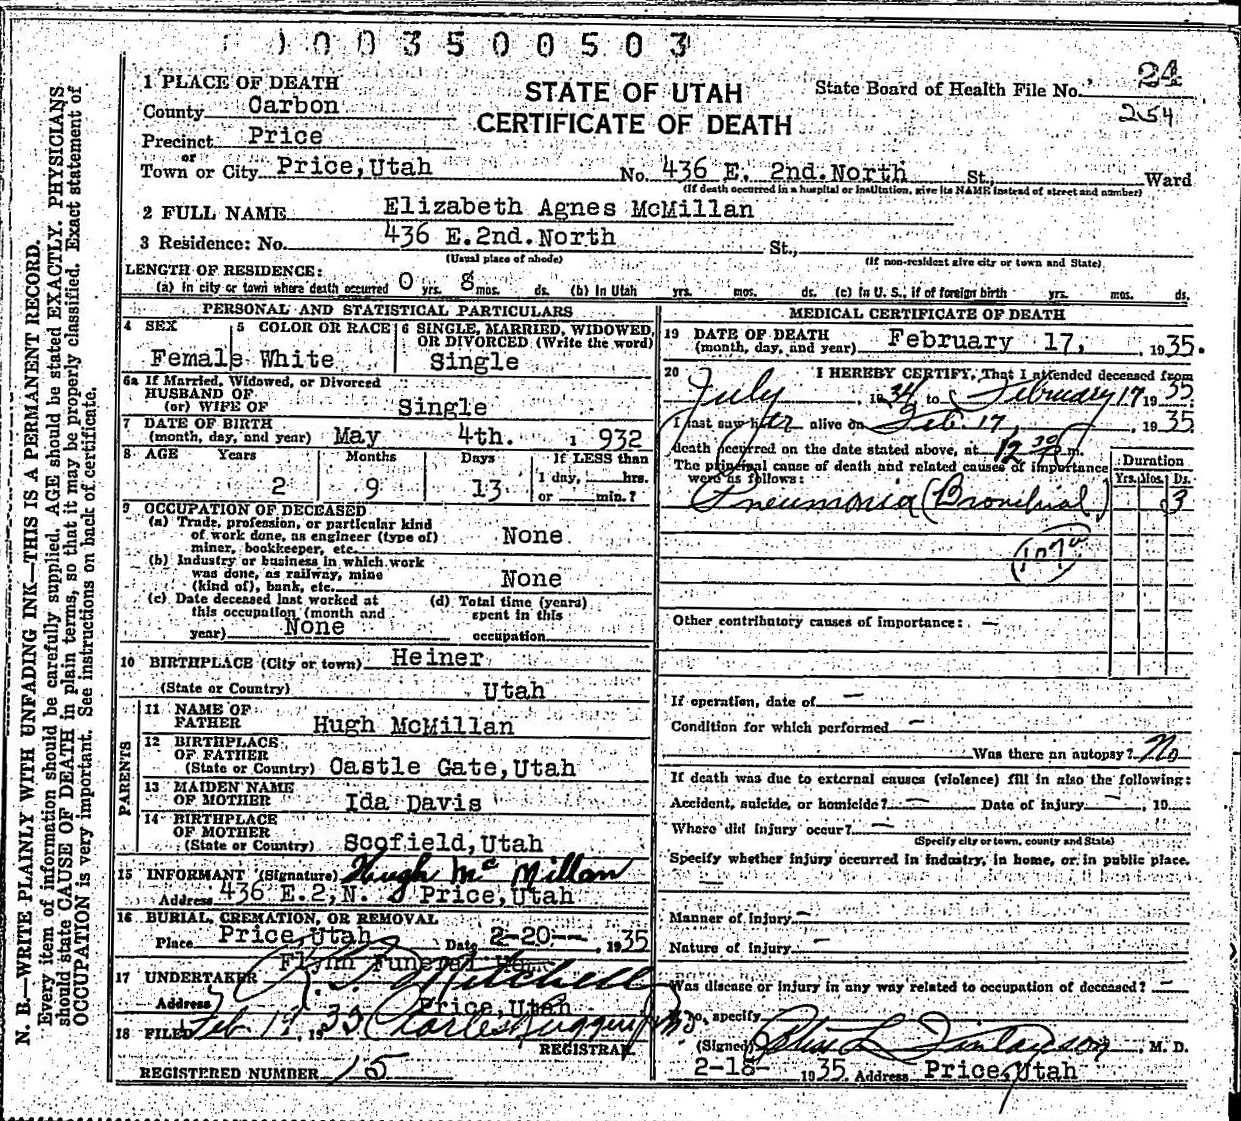 1003500503
1 PLACE OF DEATH
STATE OF UTAH
CERTIFICATE OF DEATH
State Board of Health File No. 24
254
County Carbon
Precinct Price
or
Town or City Price, Utah No. 436 E. 2nd. North St., Ward
(If death occurred in a hospital or institution, give its NAME instead of street and number)
2 FULL NAME Elizabeth Agnes McMillan
3 Residence: No. 436 E.2nd.North St.,
(Usual place of abode) (If non-resident give city or town and State)
LENGTH OF RESIDENCE:
(a) in city or town where death occurred 0 yrs. 8 mos. ds. (b) In Utah yrs. mos. ds. (c) in U. S., if of foreign birth yrs. mos. ds.
PERSONAL AND STATISTICAL PARTICULARS
4 SEX
Female
5 COLOR OR RACE
White
6 SINGLE, MARRIED, WIDOWED,
OR DIVORCED (Write the word)
Single
6a If Married, Widowed, or Divorced
HUSBAND OF
(or) WIFE OF Single
7 DATE OF BIRTH
(month, day, and year) May 4th. 1932
8 AGE Years Months Days If LESS than
1 day, hrs.
or min.?
2 9 13
9 OCCUPATION OF DECEASED
(a) Trade, profession, or particular kind
of work done, as engineer (type of)
miner, bookkeeper, etc. None
(b) Industry or business in which work
was done, as railway, mine
(kind of), bank, etc. None
(c) Date deceased last worked at
this occupation (month and
year) None
(d) Total time (years)
spent in this
occupation
10 BIRTHPLACE (City or town) Heiner
(State or Country) Utah
PARENTS
11 NAME OF
FATHER Hugh McMillan
12 BIRTHPLACE
OF FATHER
(State or Country) Castle Gate, Utah
13 MAIDEN NAME
OF MOTHER Ida Davis
14 BIRTHPLACE
OF MOTHER
(State or Country) Scofield, Utah
15 INFORMANT (Signature) Hugh McMillan
Address 436 E.2,N. Price, Utah
16 BURIAL, CREMATION, OR REMOVAL
Place Price, Utah Date 2-20-- , 1935
Flynn Funeral Home
17 UNDERTAKER Mitchell
Address Price, Utah
18 FILED Feb 19, 1935 Charles Ruggeri Jr MD
REGISTRAR
REGISTERED NUMBER 15
MEDICAL CERTIFICATE OF DEATH
19 DATE OF DEATH
(month, day, and year) February 17, , 1935.
20 I HEREBY CERTIFY, That I attended deceased from
July , 1934 to February 17 1935
I last saw her alive on Feb. 17, , 1935
death occurred on the date stated above, at 12 30 P.m.
The principal cause of death and related causes of importance
were as follows:
Duration
Yrs. Mos. Ds.
Pneumonia (Bronchial) 3
107a
Other contributory causes of importance: —
If operation, date of —
Condition for which performed —
Was there an autopsy? No
If death was due to external causes (violence) fill in also the following:
Accident, suicide, or homicide? — Date of injury — , 19
Where did injury occur? —
(Specify city or town, county and State)
Specify whether injury occurred in industry, in home, or in public place.
—
Manner of injury —
Nature of injury —
Was disease or injury in any way related to occupation of deceased? —
If so, specify
(Signed) L. Finlayson , M. D.
2-18- 1935. Address Price, Utah
N. B.—WRITE PLAINLY WITH UNFADING INK—THIS IS A PERMANENT RECORD.
Every item of information should be carefully supplied. AGE should be stated EXACTLY. PHYSICIANS
should state CAUSE OF DEATH in plain terms, so that it may be properly classified. Exact statement of
OCCUPATION is very important. See instructions on back of certificate.